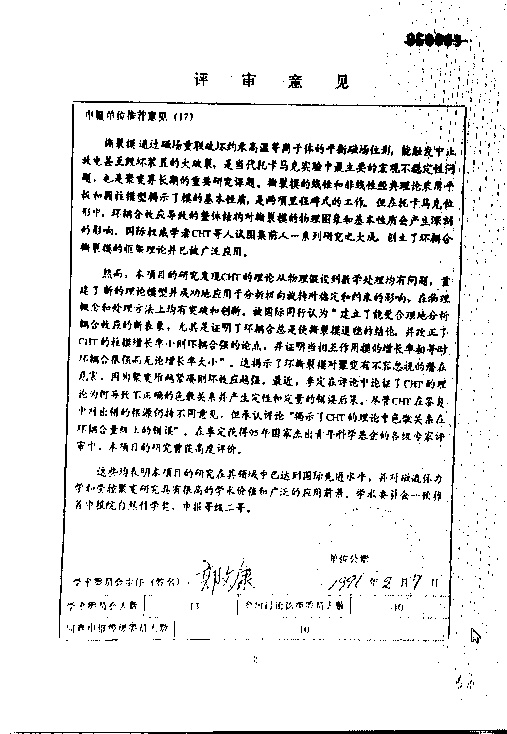 评审意见
申报单位推荐意见（17）
撕裂模通过磁场重联破坏约束高温等离子体的平衡磁场位形，能触发中止
放电甚至毁坏装置的大破裂，是当代托卡马克实验中最主要的宏观不稳定性问
题，也是聚变界长期的重要研究课题。撕裂模的线性和非线性经典理论采用平
板和圆柱模型揭示了模的基本性质，是两项里程碑式的工作。但在托卡马克位
形中，环耦合效应导致的整体结构对撕裂模的物理图象和基本性质会产生深刻
的影响。国际权威学者CHT等人试图集前人一系列研究之大成，创立了环耦合
撕裂模的框架理论并已被广泛应用。
然而，本项目的研究发现CHT的理论从物理假设到数学处理均有问题，重
建了新的理论模型并成功地应用于分析扭向旋转对稳定和约束的影响，在物理
概念和处理方法上均有突破和创新。被国际同行认为“建立了能更合理地分析
耦合效应的新表象，尤其是证明了环耦合总是使撕裂模退稳的结论，并改正了
CHT的柱模增长率小则环耦合强的论点，并证明当相互作用模的增长率相等时
环耦合很强而无论增长率大小”。这揭示了环撕裂模对聚变有不容忽视的潜在
危害，因为聚变所趋紧凑则环效应越强。最近，李定在评论中论证了CHT的理
论为何导致不正确的色散关系并产生定性和定量的错误后果。尽管CHT在答复
中对出错的根源仍持不同意见，但承认评论“揭示了CHT的理论中色散关系在
环耦合量级上的错误”。在李定获得95年国家杰出青年科学基金的各级专家评
审中，本项目的研究曾获高度评价。
这些均表明本项目的研究在其领域中已达到国际先进水平，并对磁流体力
学和受控聚变研究具有很高的学术价值和广泛的应用前景。学术委员会一致推
荐申报院自然科学奖，申报等级二等。
单位公章
学术委员会主任（签名）： 1996年2月7日
学术委员会人数 13 10
同意申报等级委员人数 10